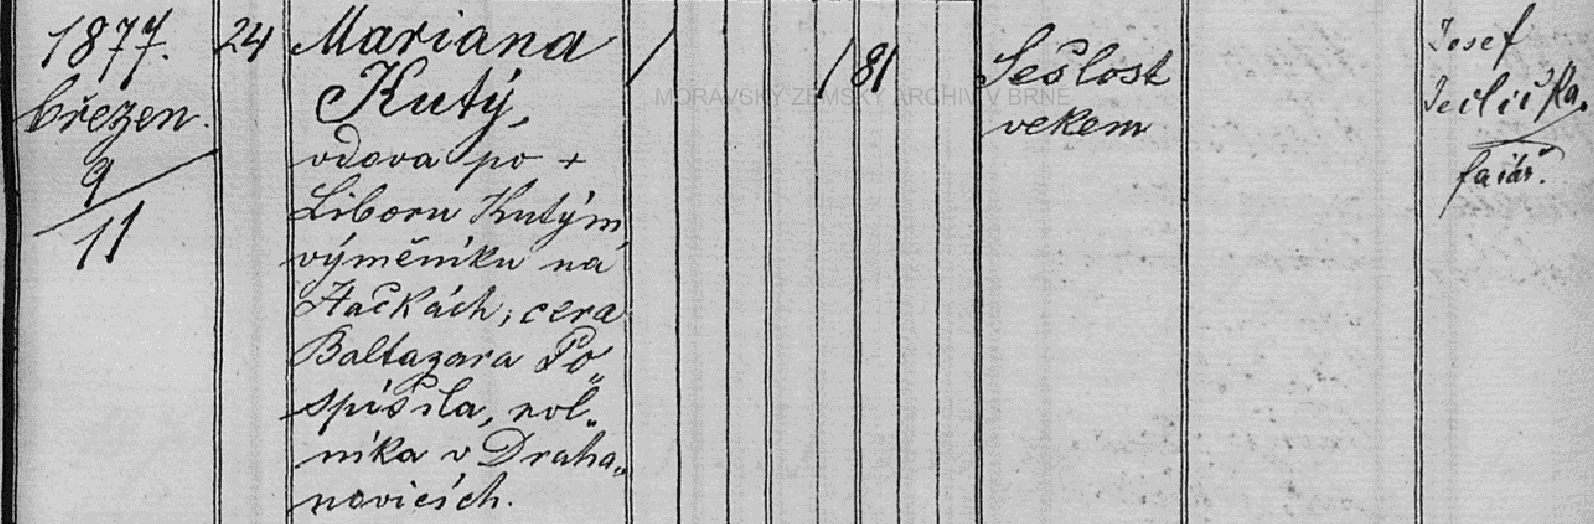 1877.
březen.
9
11
24
Mariana
Kutý,
vdova po +
Liboru Kutým,
výměníku na
Hačkách, cera
Baltazara Po„
spíšila, rol„
níka v Draha„
novicích.
/
/
81
Sešlost
vekem
Josef
farář.
MORAVSKÝ ZEMSKÝ ARCHIV V BRNĚ